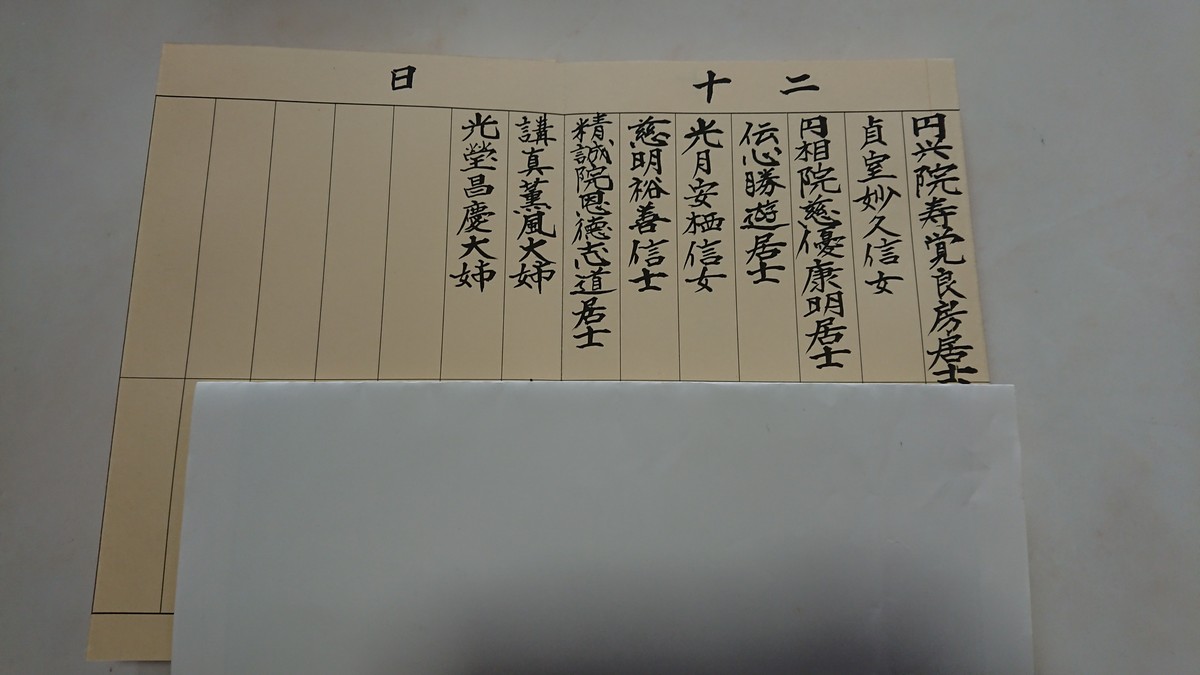 二十日
円兴院寿覚良房居士
貞室妙久信女
円相院慈優康明居士
伝心勝遊居士
光月安栖信女
慈明裕善信士
精誠院恩徳志道居士
講真薫風大姉
光瑩昌慶大姉